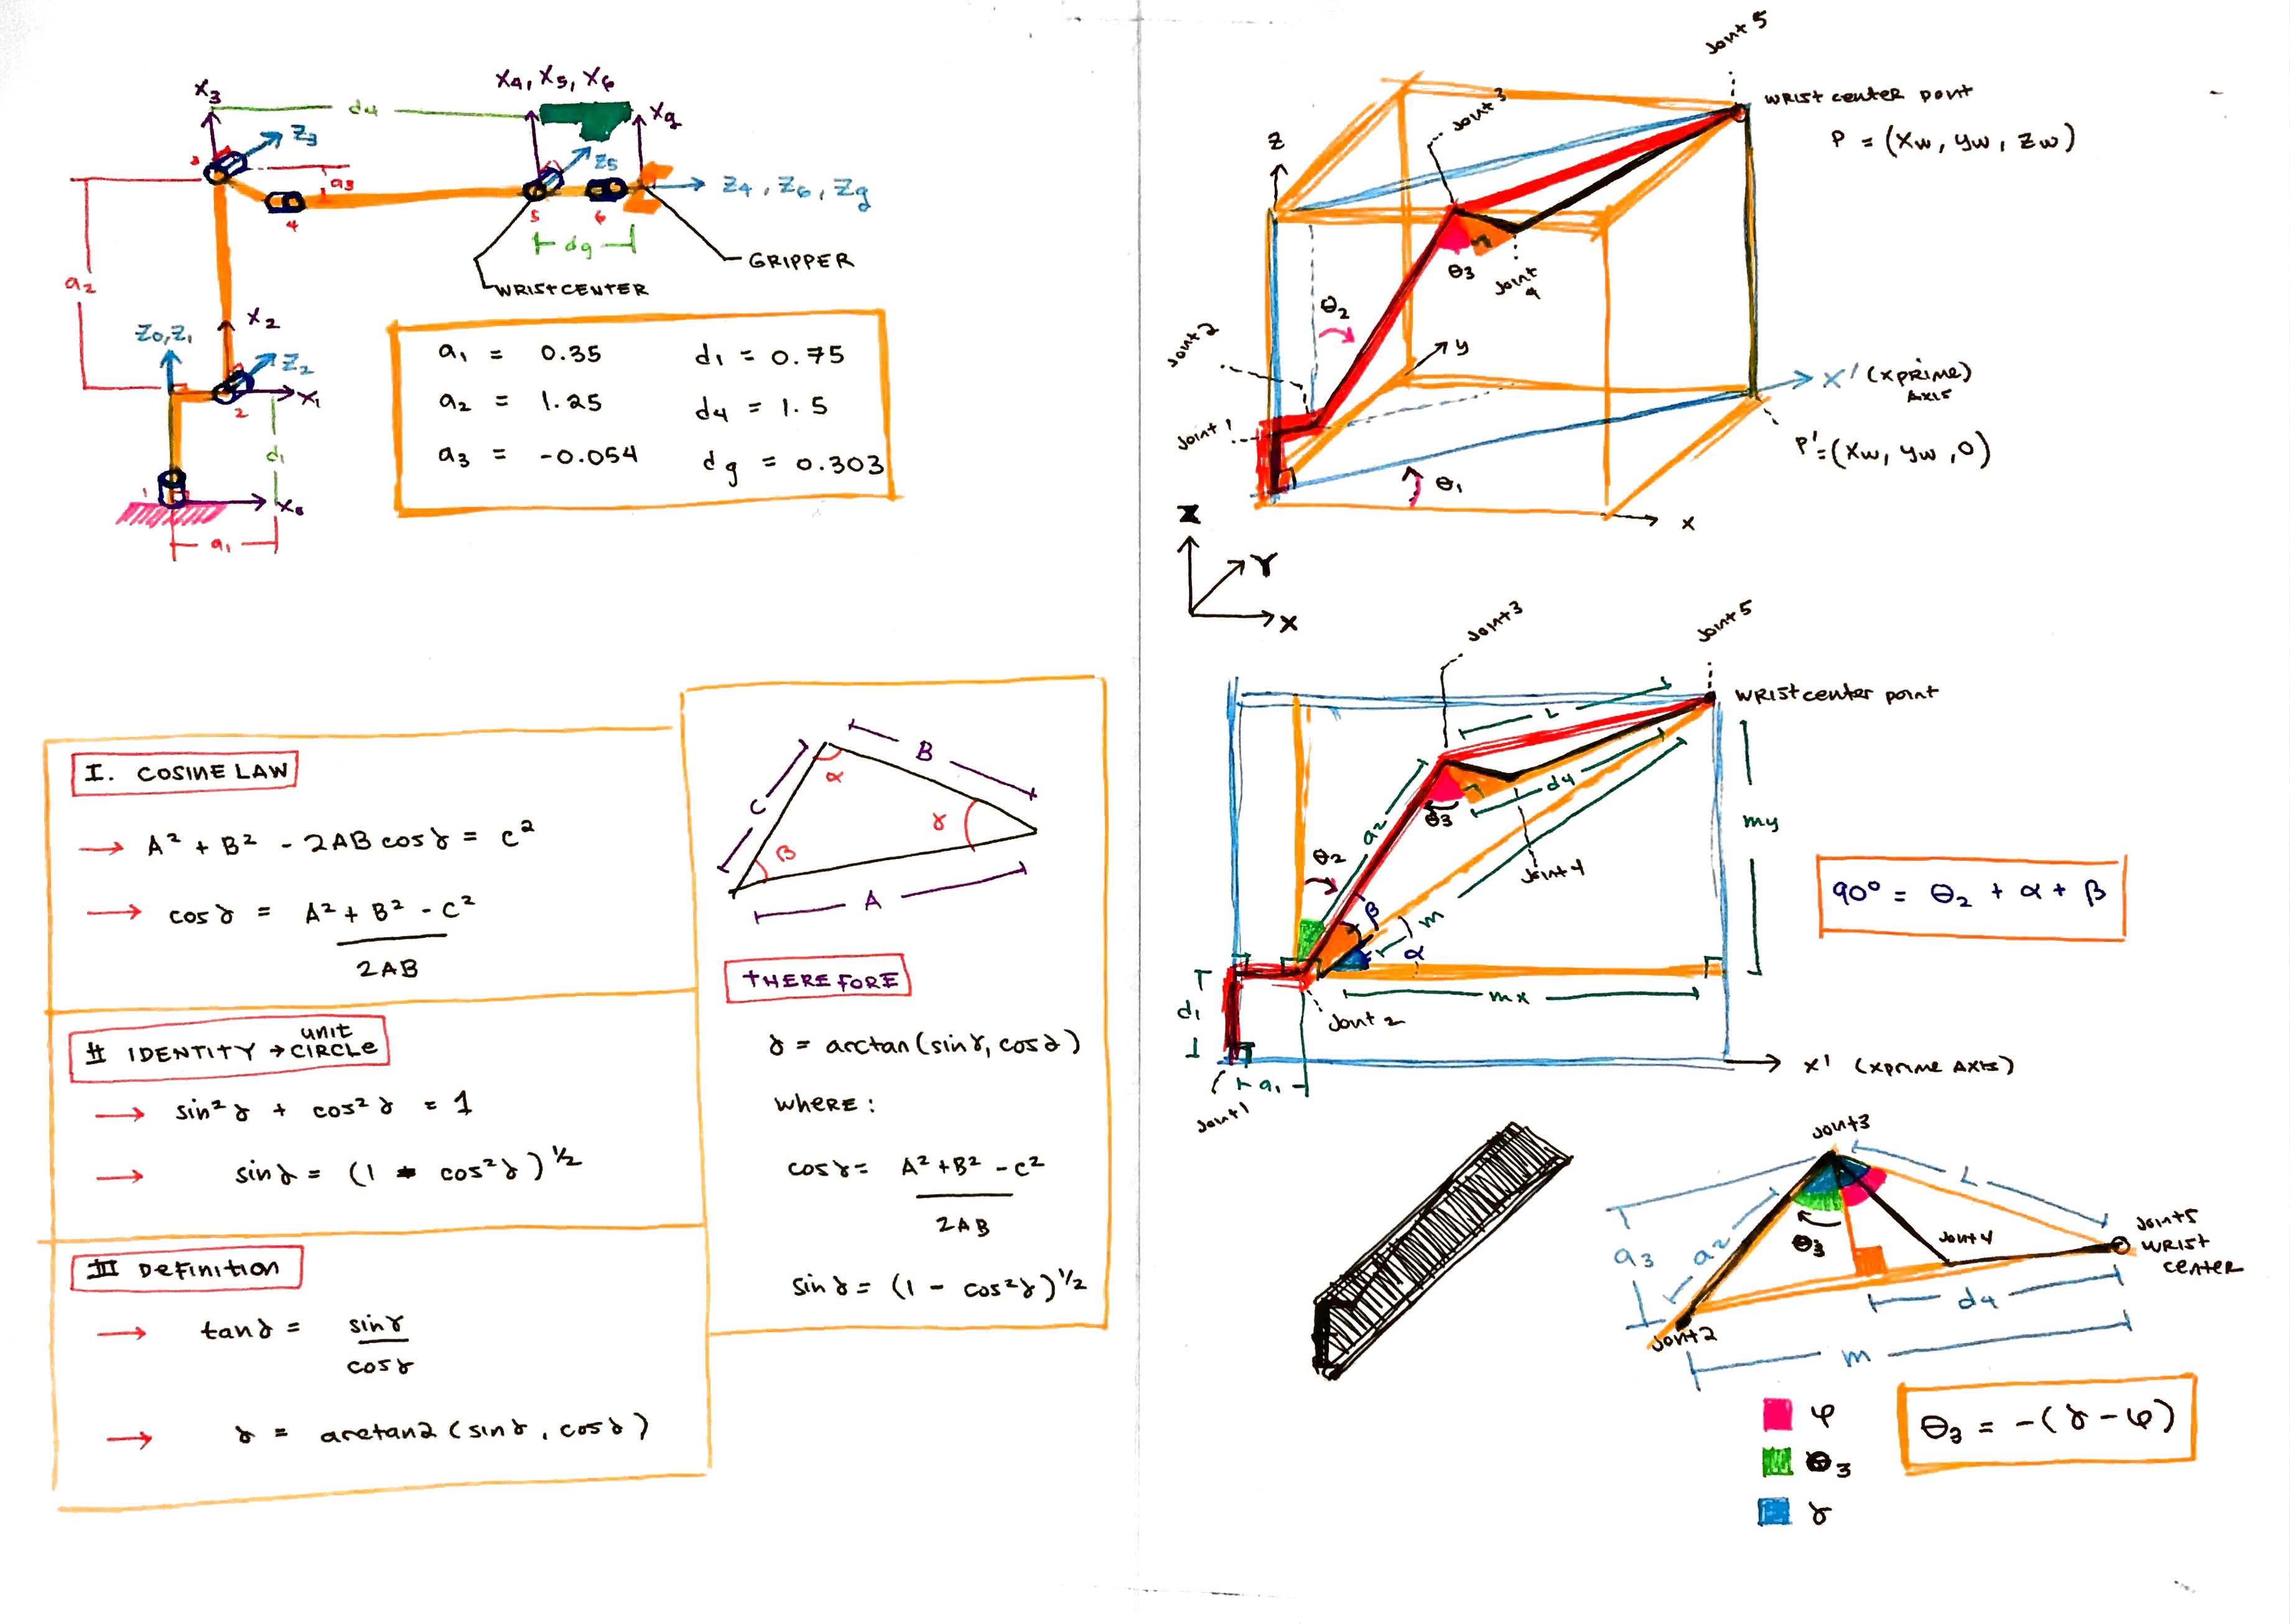 X₃
d₄
X₄, X₅, X₆
Xg
Z₃
Z₅
a₃
Z₄, Z₆, Zg
3
4
5
6
dg
GRIPPER
WRIST CENTER
a₂
Z₀,Z₁
X₂
Z₂
X₁
2
d₁
1
X₀
a₁
a₁ = 0.35 d₁ = 0.75
a₂ = 1.25 d₄ = 1.5
a₃ = -0.054 dg = 0.303
I. COSINE LAW
→ A² + B² - 2AB cos γ = C²
→ cos γ = A² + B² - C²
2AB
II IDENTITY → unit CIRCLE
→ sin² γ + cos² γ = 1
→ sin γ = (1 - cos² γ)^½
III Definition
→ tan γ = sin γ
cos γ
→ γ = arctan2 (sin γ, cos γ)
B
C
α
γ
β
A
THEREFORE
γ = arctan (sin γ, cos γ)
where:
cos γ = A² + B² - C²
2AB
sin γ = (1 - cos² γ)^½
Joint 5
WRIST center point
P = (Xw, yw, zw)
Joint 3
Z
θ₃
Joint 4
θ₂
Joint 2
y
X' (Xprime) Axis
Joint 1
P' = (Xw, yw, 0)
θ₁
x
Z
Y
X
Joint 3
Joint 5
WRIST center point
L
d₄
my
a₂
θ₃
θ₂
Joint 4
β
m
α
90° = θ₂ + α + β
mx
d₁
Joint 2
X' (Xprime Axis)
a₁
Joint 1
Joint 3
L
a₃
a₂
θ₃
Joint 4
Joint 5
WRIST
center
d₄
Joint 2
m
φ
θ₃
γ
θ₃ = -(γ - φ)